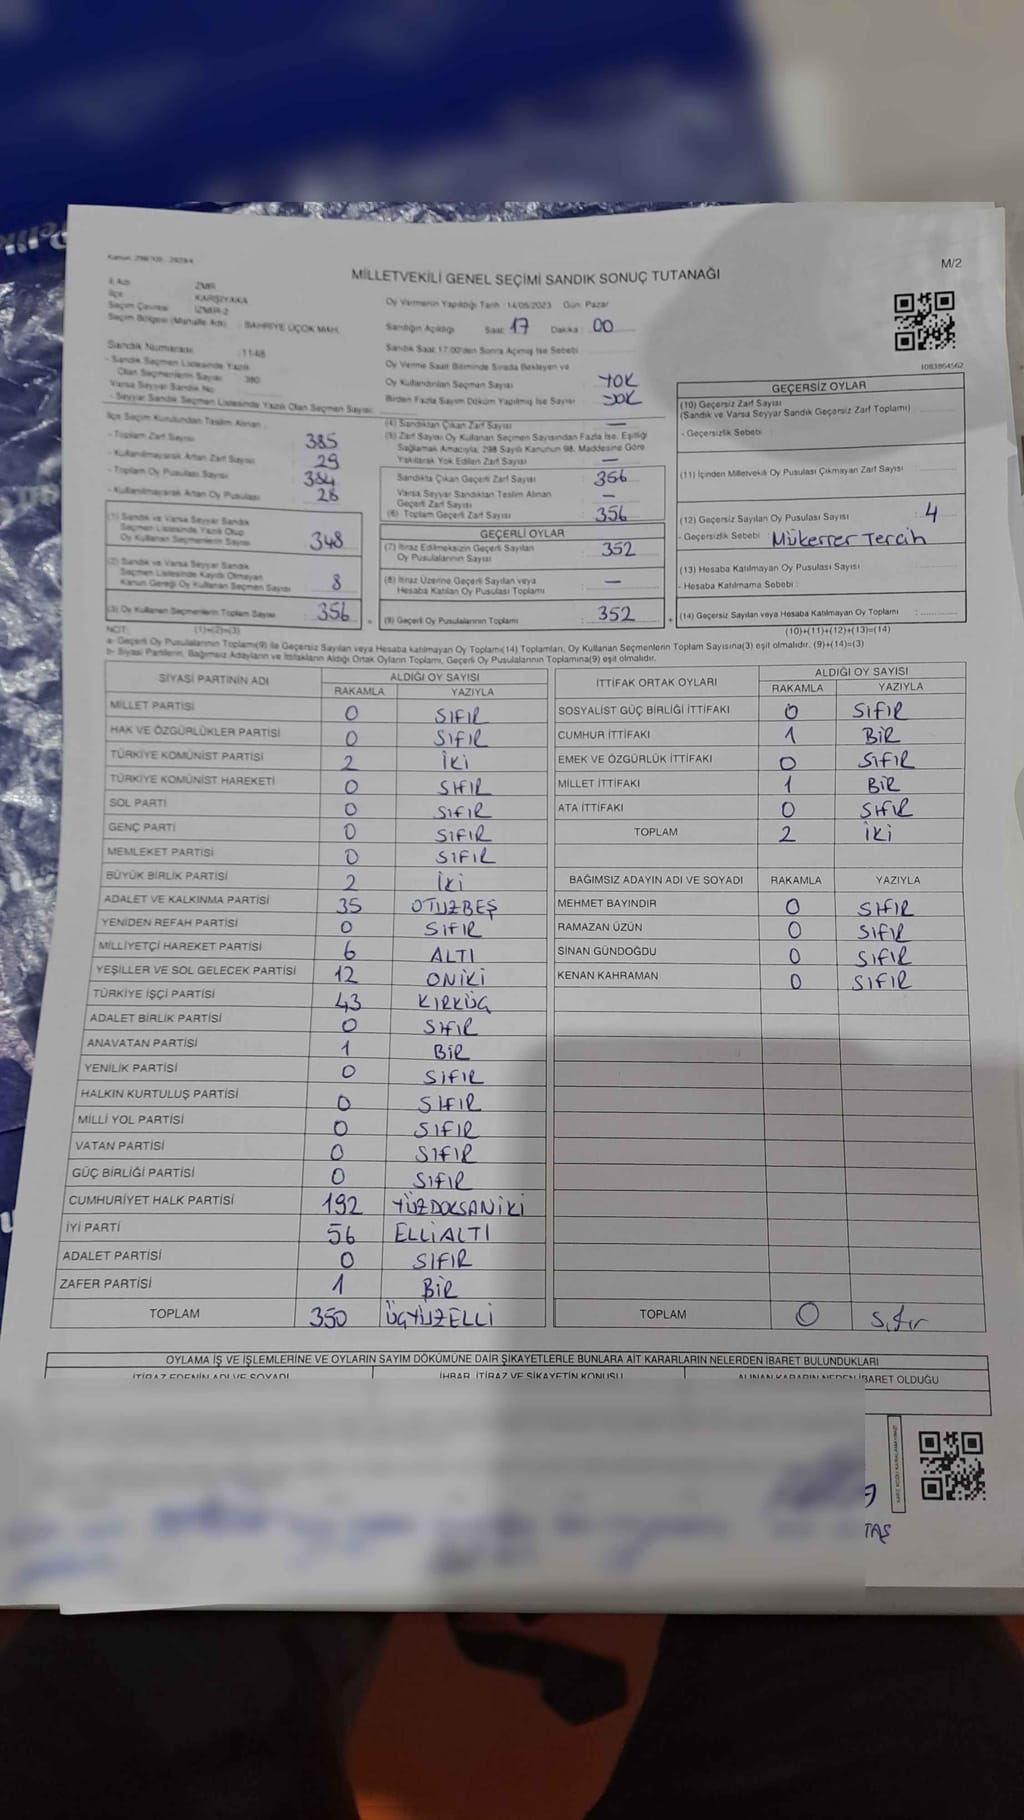 Kanun: 298/105 - 2839/4
MİLLETVEKİLİ GENEL SEÇİMİ SANDIK SONUÇ TUTANAĞI
M/2
İl Adı İZMİR
İlçe KARŞIYAKA
Seçim Çevresi İZMİR-2
Seçim Bölgesi (Mahalle Adı) : BAHRİYE ÜÇOK MAH.
Oy Vermenin Yapıldığı Tarih : 14/05/2023 Gün: Pazar
Sandığın Açıldığı Saat: 17 Dakika : 00
Sandık Saat 17:00'den Sonra Açılmış İse Sebebi
Oy Verme Saati Bitiminde Sırada Bekleyen ve
Oy Kullandırılan Seçmen Sayısı YOK
Birden Fazla Sayım Döküm Yapılmış İse Sayısı YOK
1083864562
Sandık Numarası : 1148
- Sandık Seçmen Listesinde Yazılı
Olan Seçmenlerin Sayısı 380
Varsa Seyyar Sandık No
- Seyyar Sandık Seçmen Listesinde Yazılı Olan Seçmen Sayısı:
İlçe Seçim Kurulundan Teslim Alınan :
- Toplam Zarf Sayısı 385
- Kullanılmayarak Artan Zarf Sayısı 29
- Toplam Oy Pusulası Sayısı 384
- Kullanılmayarak Artan Oy Pusulası 28
(1) Sandık ve Varsa Seyyar Sandık
Seçmen Listesinde Yazılı Olup
Oy Kullanan Seçmenlerin Sayısı 348
(2) Sandık ve Varsa Seyyar Sandık
Seçmen Listesinde Kayıtlı Olmayan
Kanun Gereği Oy Kullanan Seçmen Sayısı 8
(3) Oy Kullanan Seçmenlerin Toplam Sayısı 356
(4) Sandıktan Çıkan Zarf Sayısı —
(5) Zarf Sayısı Oy Kullanan Seçmen Sayısından Fazla İse, Eşitliği
Sağlamak Amacıyla, 298 Sayılı Kanunun 98. Maddesine Göre
Yakılarak Yok Edilen Zarf Sayısı —
Sandıkta Çıkan Geçerli Zarf Sayısı 356
Varsa Seyyar Sandıktan Teslim Alınan
Geçerli Zarf Sayısı —
(6) Toplam Geçerli Zarf Sayısı 356
GEÇERLİ OYLAR
(7) İtiraz Edilmeksizin Geçerli Sayılan
Oy Pusulalarının Sayısı 352
(8) İtiraz Üzerine Geçerli Sayılan veya
Hesaba Katılan Oy Pusulası Toplamı —
(9) Geçerli Oy Pusulalarının Toplamı 352
GEÇERSİZ OYLAR
(10) Geçersiz Zarf Sayısı
(Sandık ve Varsa Seyyar Sandık Geçersiz Zarf Toplamı)
- Geçersizlik Sebebi :
(11) İçinden Milletvekili Oy Pusulası Çıkmayan Zarf Sayısı :
(12) Geçersiz Sayılan Oy Pusulası Sayısı : 4
- Geçersizlik Sebebi : Mükerrer Tercih
(13) Hesaba Katılmayan Oy Pusulası Sayısı :
- Hesaba Katılmama Sebebi :
(14) Geçersiz Sayılan veya Hesaba Katılmayan Oy Toplamı :
NOT: (1)+(2)=(3)
(10)+(11)+(12)+(13)=(14)
a- Geçerli Oy Pusulalarının Toplamı(9) ile Geçersiz Sayılan veya Hesaba katılmayan Oy Toplamı(14) Toplamları, Oy Kullanan Seçmenlerin Toplam Sayısına(3) eşit olmalıdır. (9)+(14)=(3)
b- Siyasi Partilerin, Bağımsız Adayların ve İttifakların Aldığı Ortak Oyların Toplamı, Geçerli Oy Pusulalarının Toplamına(9) eşit olmalıdır.
SİYASİ PARTİNİN ADI ALDIĞI OY SAYISI
RAKAMLA YAZIYLA
MİLLET PARTİSİ 0 SIFIR
HAK VE ÖZGÜRLÜKLER PARTİSİ 0 SIFIR
TÜRKİYE KOMÜNİST PARTİSİ 2 İKİ
TÜRKİYE KOMÜNİST HAREKETİ 0 SIFIR
SOL PARTİ 0 SIFIR
GENÇ PARTİ 0 SIFIR
MEMLEKET PARTİSİ 0 SIFIR
BÜYÜK BİRLİK PARTİSİ 2 İKİ
ADALET VE KALKINMA PARTİSİ 35 OTUZBEŞ
YENİDEN REFAH PARTİSİ 0 SIFIR
MİLLİYETÇİ HAREKET PARTİSİ 6 ALTI
YEŞİLLER VE SOL GELECEK PARTİSİ 12 ONİKİ
TÜRKİYE İŞÇİ PARTİSİ 43 KIRKÜÇ
ADALET BİRLİK PARTİSİ 0 SIFIR
ANAVATAN PARTİSİ 1 BİR
YENİLİK PARTİSİ 0 SIFIR
HALKIN KURTULUŞ PARTİSİ 0 SIFIR
MİLLİ YOL PARTİSİ 0 SIFIR
VATAN PARTİSİ 0 SIFIR
GÜÇ BİRLİĞİ PARTİSİ 0 SIFIR
CUMHURİYET HALK PARTİSİ 192 YÜZDOKSANİKİ
İYİ PARTİ 56 ELLİALTI
ADALET PARTİSİ 0 SIFIR
ZAFER PARTİSİ 1 BİR
TOPLAM 350 ÜÇYÜZELLİ
İTTİFAK ORTAK OYLARI ALDIĞI OY SAYISI
RAKAMLA YAZIYLA
SOSYALİST GÜÇ BİRLİĞİ İTTİFAKI 0 SIFIR
CUMHUR İTTİFAKI 1 BİR
EMEK VE ÖZGÜRLÜK İTTİFAKI 0 SIFIR
MİLLET İTTİFAKI 1 BİR
ATA İTTİFAKI 0 SIFIR
TOPLAM 2 İKİ
BAĞIMSIZ ADAYIN ADI VE SOYADI RAKAMLA YAZIYLA
MEHMET BAYINDIR 0 SIFIR
RAMAZAN ÜZÜN 0 SIFIR
SİNAN GÜNDOĞDU 0 SIFIR
KENAN KAHRAMAN 0 SIFIR
TOPLAM 0 Sıfır
OYLAMA İŞ VE İŞLEMLERİNE VE OYLARIN SAYIM DÖKÜMÜNE DAİR ŞİKAYETLERLE BUNLARA AİT KARARLARIN NELERDEN İBARET BULUNDUKLARI
İTİRAZ EDENİN ADI VE SOYADI İHBAR, İTİRAZ VE ŞİKAYETİN KONUSU ALINAN KARARIN NEDEN İBARET OLDUĞU
TAŞ